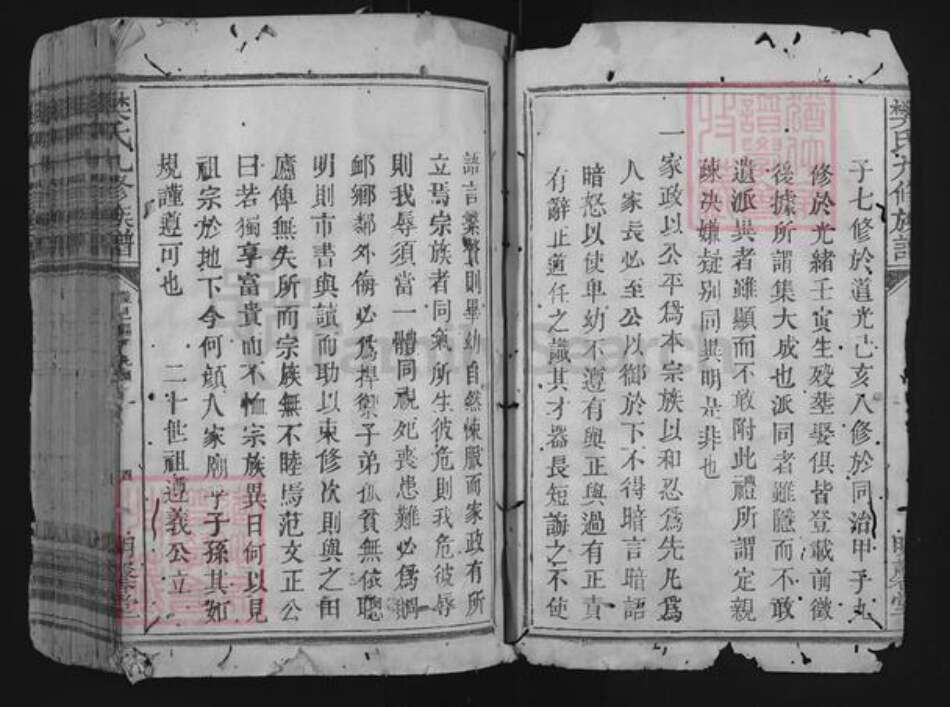 樊氏九修族譜
子七修於道光己亥八修於同治甲子九
修於光緒壬寅生歿塟娶俱皆登載前徵
後據所謂集大成也派同者雖隱而不敢
遺派異者雖顯而不敢附此禮所謂定親
疎決嫌疑别同異明是非也
一家政以公平爲本宗族以和忍爲先凡爲
人家長必至公以御於下不得暗言暗語
暗怒以使卑幼不遵有與正與過有正責
有辭正道任之議其才器長短誨之不使
語言 則卑幼自然悚服而家政有所
立焉宗族者同氣所生彼危則我危彼辱
則我辱須當一體同視死喪患難必爲賙
䘏鄉鄰外侮必爲捍禦子弟孤貧無依聰
明則市書與讀而助以束修次則與之田
廬俾無失所而宗族無不睦焉范文正公
曰若獨享富貴而不恤宗族異日何以見
祖宗於地下今何顏入家廟乎子孫其如
規謹遵可也　二十世祖遵義公立
樊氏九修族譜
FamilySearch